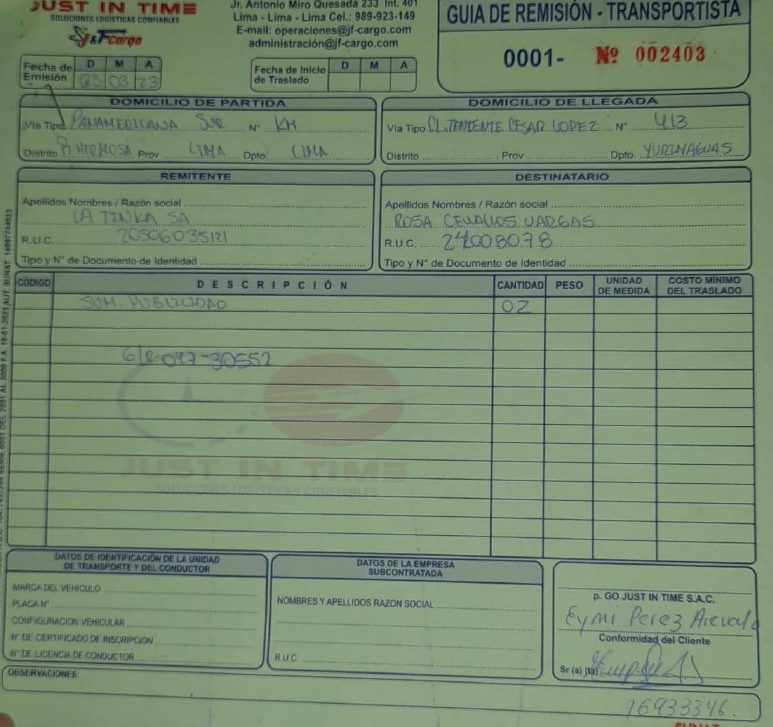 JUST IN TIME
SOLUCIONES LOGISTICAS CONFIABLES
J&F cargo
Jr. Antonio Miro Quesada 233 Int. 401
Lima - Lima - Lima Cel.: 989-923-149
E-mail: operaciones@jf-cargo.com
administración@jf-cargo.com
GUIA DE REMISIÓN - TRANSPORTISTA
0001- Nº 002403
Fecha de Emisión D M A
03 03 23
Fecha de Inicio de Traslado D M A
DOMICILIO DE PARTIDA
Vía Tipo PANAMERICANA SUR N° KM
Distrito P. HERMOSA Prov LIMA Dpto LIMA
DOMICILIO DE LLEGADA
Vía Tipo CL. TENIENTE CESAR LOPEZ N° 413
Distrito Prov Dpto. YURIMAGUAS
REMITENTE
Apellidos Nombres / Razón social
LA TINKA SA
R.U.C. 20506035121
Tipo y N° de Documento de Identidad
DESTINATARIO
Apellidos Nombres / Razón social
ROSA CEVALLOS VARGAS
R.U.C.
Tipo y N° de Documento de Identidad
CÓDIGO DESCRIPCIÓN CANTIDAD PESO UNIDAD DE MEDIDA COSTO MÍNIMO DEL TRASLADO
SUM. PUBLICIDAD 02
G/R 047-30552
JUST IN TIME
SOLUCIONES LOGISTICAS CONFIABLES
DATOS DE IDENTIFICACIÓN DE LA UNIDAD
DE TRANSPORTE Y DEL CONDUCTOR
MARCA DEL VEHICULO
PLACA N°
CONFIGURACION VEHICULAR
N° DE CERTIFICADO DE INSCRIPCION
N° DE LICENCIA DE CONDUCTOR
DATOS DE LA EMPRESA
SUBCONTRATADA
NOMBRES Y APELLIDOS RAZON SOCIAL
R.U.C.
p. GO JUST IN TIME S.A.C.
Eymi Perez Arevalo
Conformidad del Cliente
Sr (a) (ta)
OBSERVACIONES:
76933346.
SUNAT